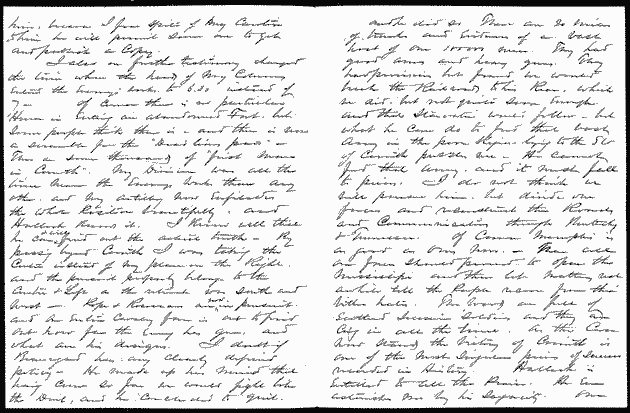 him, because I fear spite of my caution
think he will permit some one to get
and publish a Copy.
I also on further testimony changed
the time when the head of my Column
entered the Enemy's works to 6.30 instead of
7 - of course there is no particular
in entering an abandoned Fort, but
some people think there is - and there is now
a scramble for the
There are some thousands of first men
in Corinth". My Division was all the
time nearer the Enemys works than any
other, and my artillery
the whole Position beautifully, and
Halleck knows it. I know all this
he can find out the actual truth - By
passing beyond Corinth I was taking the
Centre instead of my place on the Right,
and the pursuit properly belongs to the
Centre & Left as the retreat was South and
West - Pope & Rosecrans are now in pursuit,
and an entire Cavalry force is out to find
out how far the Enemy has gone, and
what are his designs. I doubt if
Beauregard has any clearly defined
policy - He made up his mind that
having come so far we would fight like
the Devil, and he concluded to quit.
and he did so. There are 20 miles
of tracks and evidences of a vast
host of over 100000 men. They had
good arms and heavy guns. They
had provisions but found we would
break the Railroads to his Rear, which
we did, but not quite soon enough
and that starvation would follow - but
what he can do to feed that vast
Army in the poor Region lying to the SW
of Corinth puzzles me - He cannot
feed that Army, and it must fall
to pieces. I do not think we
will pursue him, but divide our
forces and reconstruct the Roads
and Communications through Kentucky
& Tennessee. Of course Memphis is
as good as ours now -
our forces should proceed to open the
Mississippi and then let matters rest
awhile till the People recover from their
bitter hate. The Woods are full of
Secession Soldiers and they
City in all the time. As the case
now stands the Victory of Corinth is
one of the most singular pieces of Success
recorded in History. Halleck is
entitled to all the Praise. He even
astonishes me by his Sagacity. Our